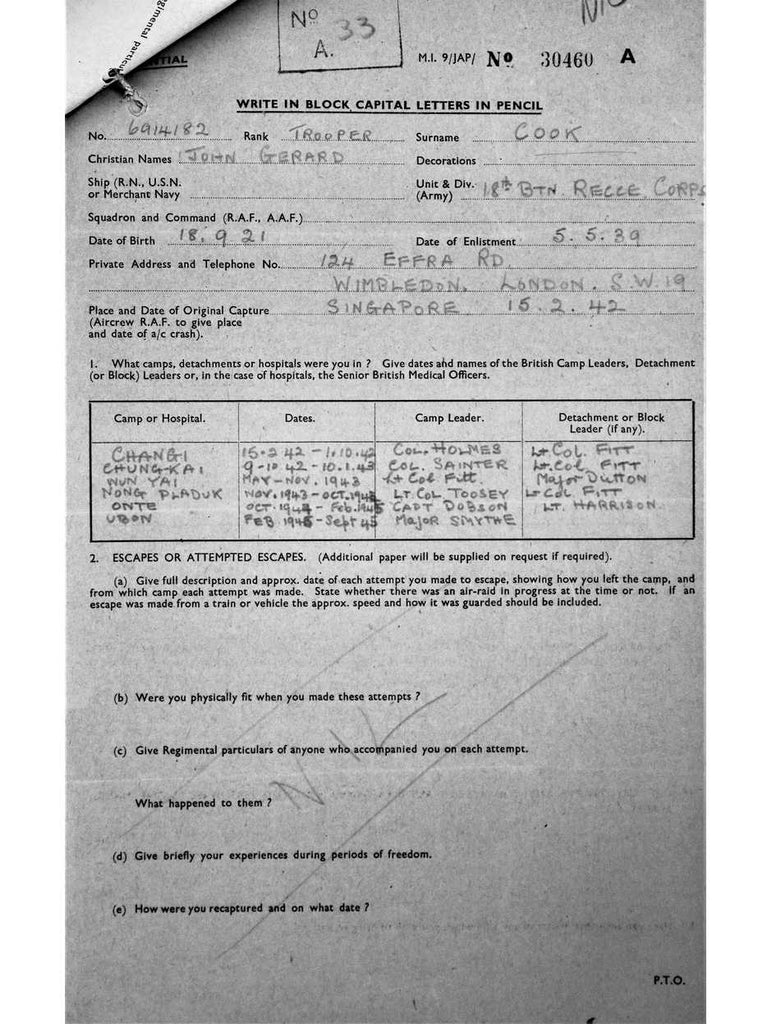 gimental particu
NTIAL
Nº 33
A.
NIL
M.I. 9/JAP/ Nº 30460 A
WRITE IN BLOCK CAPITAL LETTERS IN PENCIL
No. 6914182 Rank TROOPER Surname COOK
Christian Names JOHN GERARD Decorations
Ship (R.N., U.S.N. or Merchant Navy
Unit & Div. (Army) 18th BTN. RECCE. CORPS
Squadron and Command (R.A.F., A.A.F.)
Date of Birth 18. 9 21 Date of Enlistment 5. 5. 39
Private Address and Telephone No. 124 EFFRA RD
WIMBLEDON. LONDON. S.W. 19
Place and Date of Original Capture SINGAPORE 15. 2. 42
(Aircrew R.A.F. to give place
and date of a/c crash).
1. What camps, detachments or hospitals were you in ? Give dates and names of the British Camp Leaders, Detachment
(or Block) Leaders or, in the case of hospitals, the Senior British Medical Officers.
Camp or Hospital. Dates. Camp Leader. Detachment or Block Leader (if any).
CHANGI 15.2 42 - 1.10.42 COL. HOLMES Lt Col. FITT
CHUNG-KAI 9-10 42 - 10.1.43 COL. SAINTER Lt. Col FITT
WUN YAI MAY - NOV. 1943 Lt Col Fitt. Major Dutton
NONG PLADUK NOV. 1943 - OCT. 194 LT. COL TOOSEY Lt Col. FITT
ONTE OCT. 1944 - Feb. 1945 CAPT DOBSON LT. HARRISON.
UBON FEB 1945 - Sept 45 Major SMYTHE
2. ESCAPES OR ATTEMPTED ESCAPES. (Additional paper will be supplied on request if required).
(a) Give full description and approx. date of each attempt you made to escape, showing how you left the camp, and
from which camp each attempt was made. State whether there was an air-raid in progress at the time or not. If an
escape was made from a train or vehicle the approx. speed and how it was guarded should be included.
(b) Were you physically fit when you made these attempts ?
(c) Give Regimental particulars of anyone who accompanied you on each attempt.
NIL
What happened to them ?
(d) Give briefly your experiences during periods of freedom.
(e) How were you recaptured and on what date ?
P.T.O.